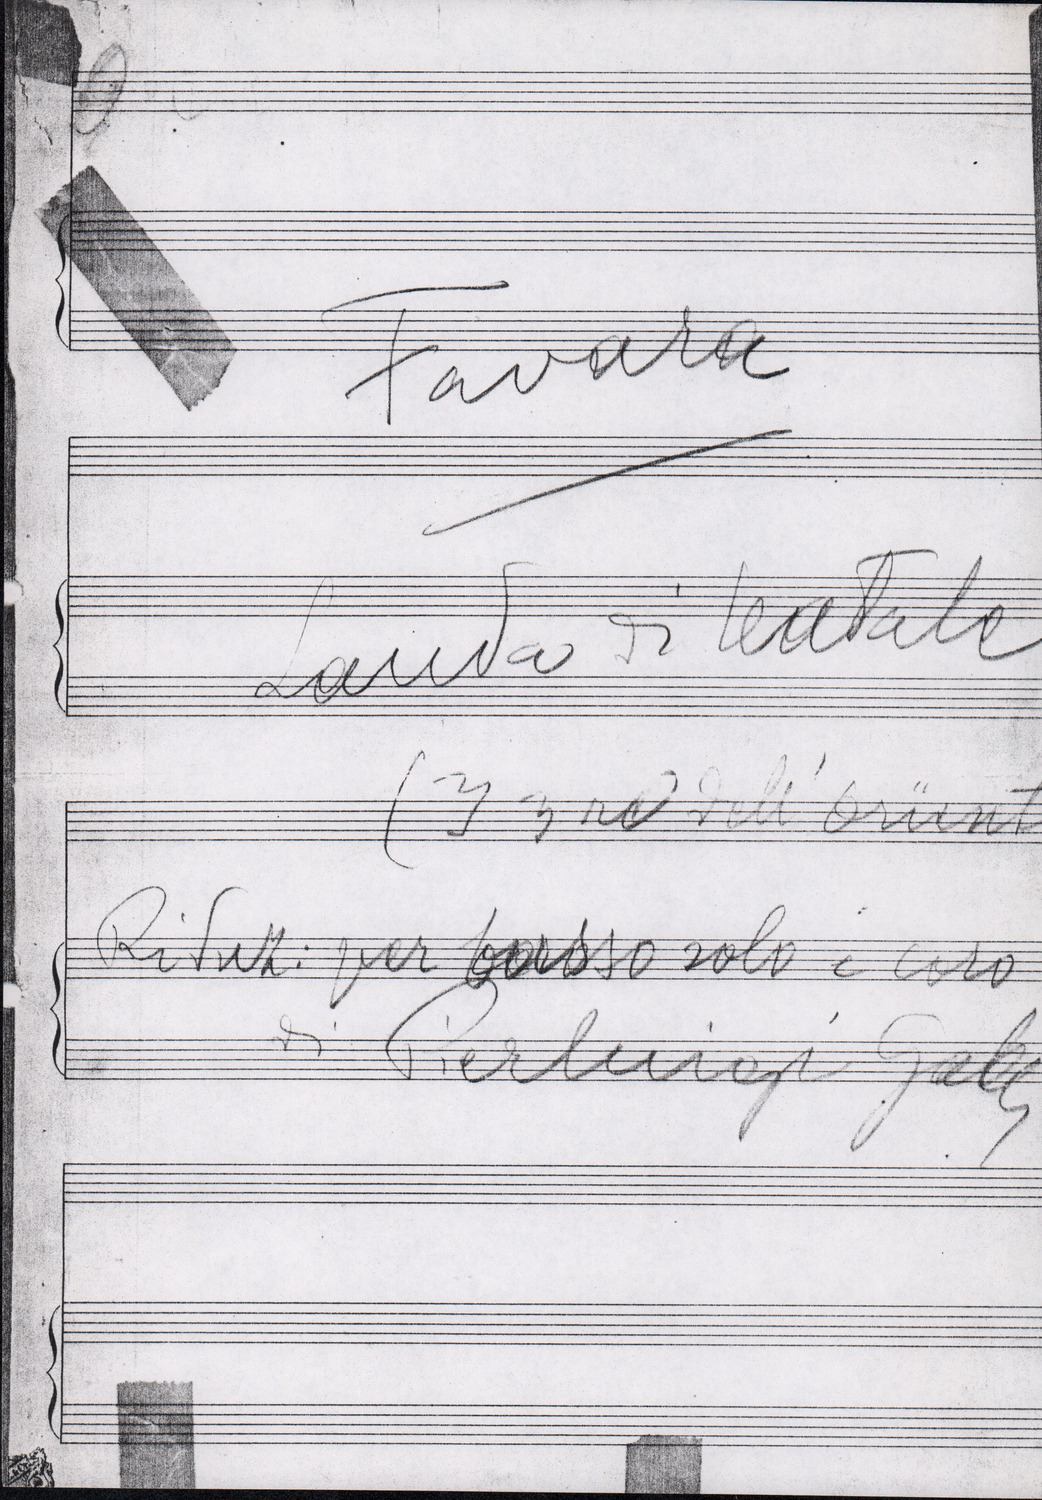 Favara
Lauda di Natale
(I 3 re dell' orient
Riduz: per basso solo e coro
di Pierluigi